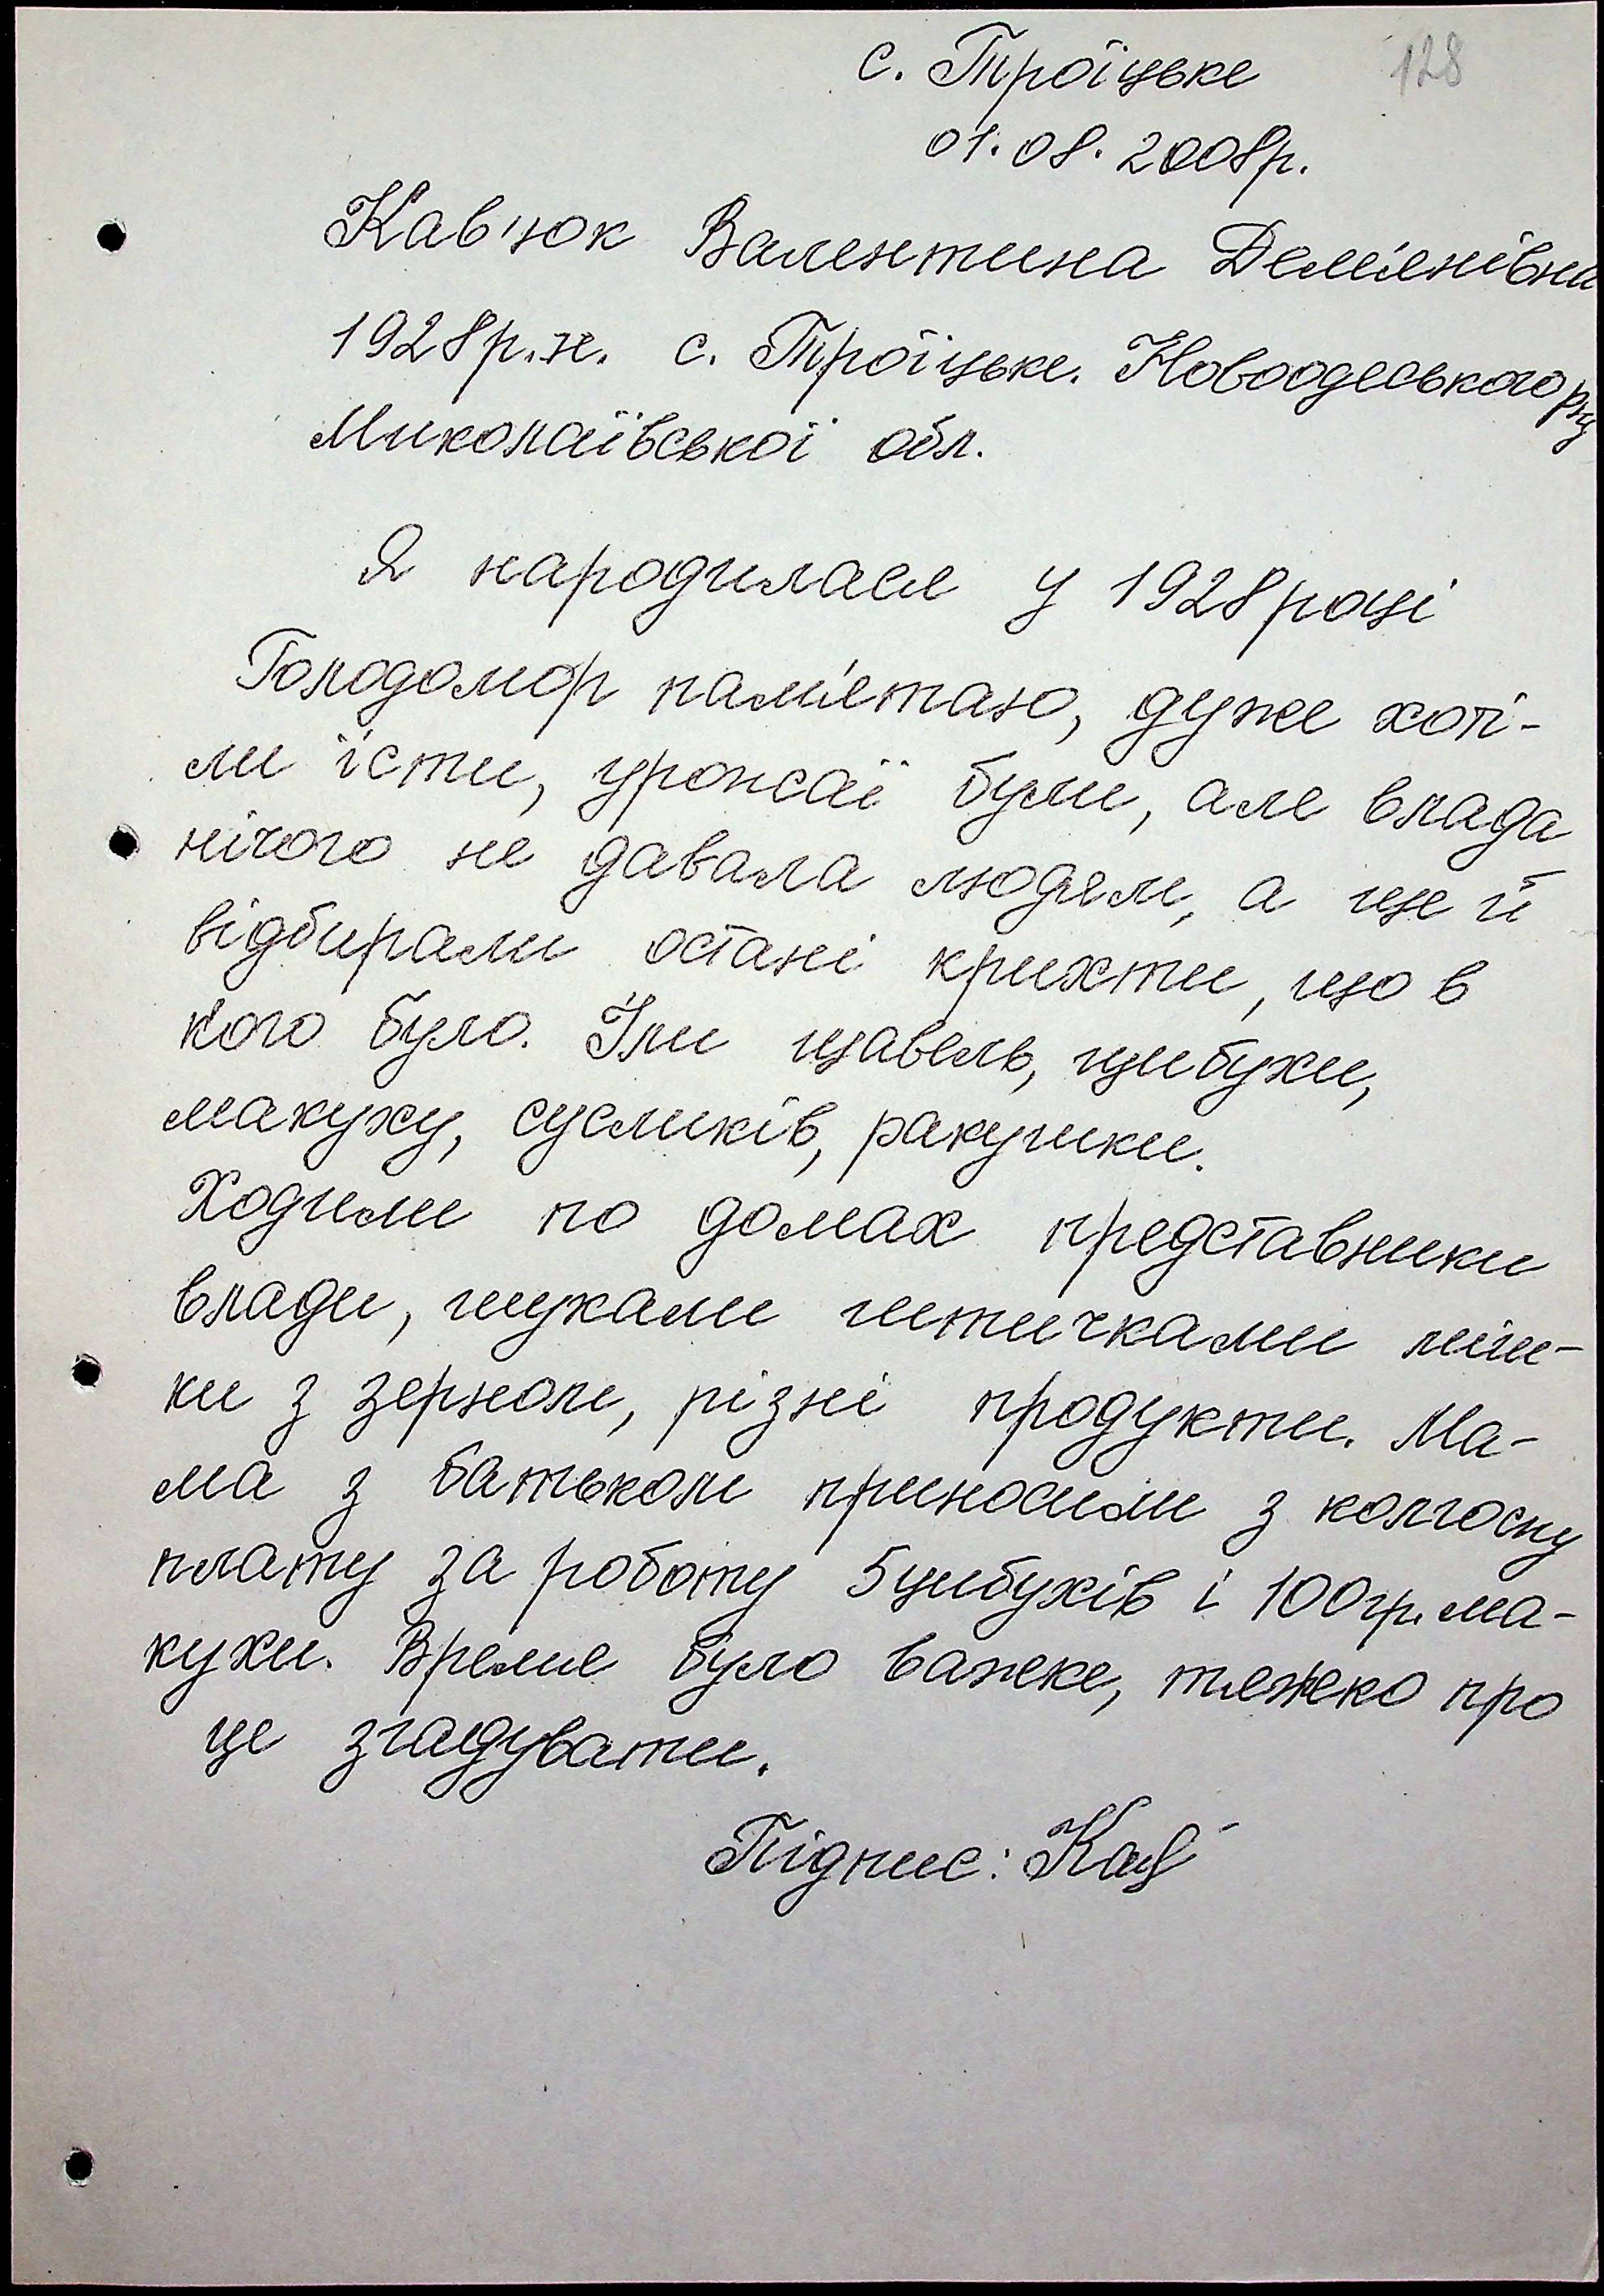 128
с. Троїцьке
01.08.2008р.
Кав'юк Валентина Дем'янівна
1928р.н. с. Троїцьке. Новоодеського р-ну
Миколаївської обл.
Я народилася у 1928році
Голодомор пам'ятаю, дуже хоті-
ли їсти, урожаї були, але влада
нічого не давала людям, а ще й
відбирали остані крихти, що в
кого було. Їли щавель, цибухи,
макуху, сусликів, ракушки.
Ходили по домах представники
влади, шукали штичками міш-
ки з зерном, різні продукти. Ма-
ма з батьком приносили з колгоспу
плату за роботу 5цибухів і 100гр. ма-
кухи. Время було важке, тяжко про
це згадувати.
Підпис: Кав